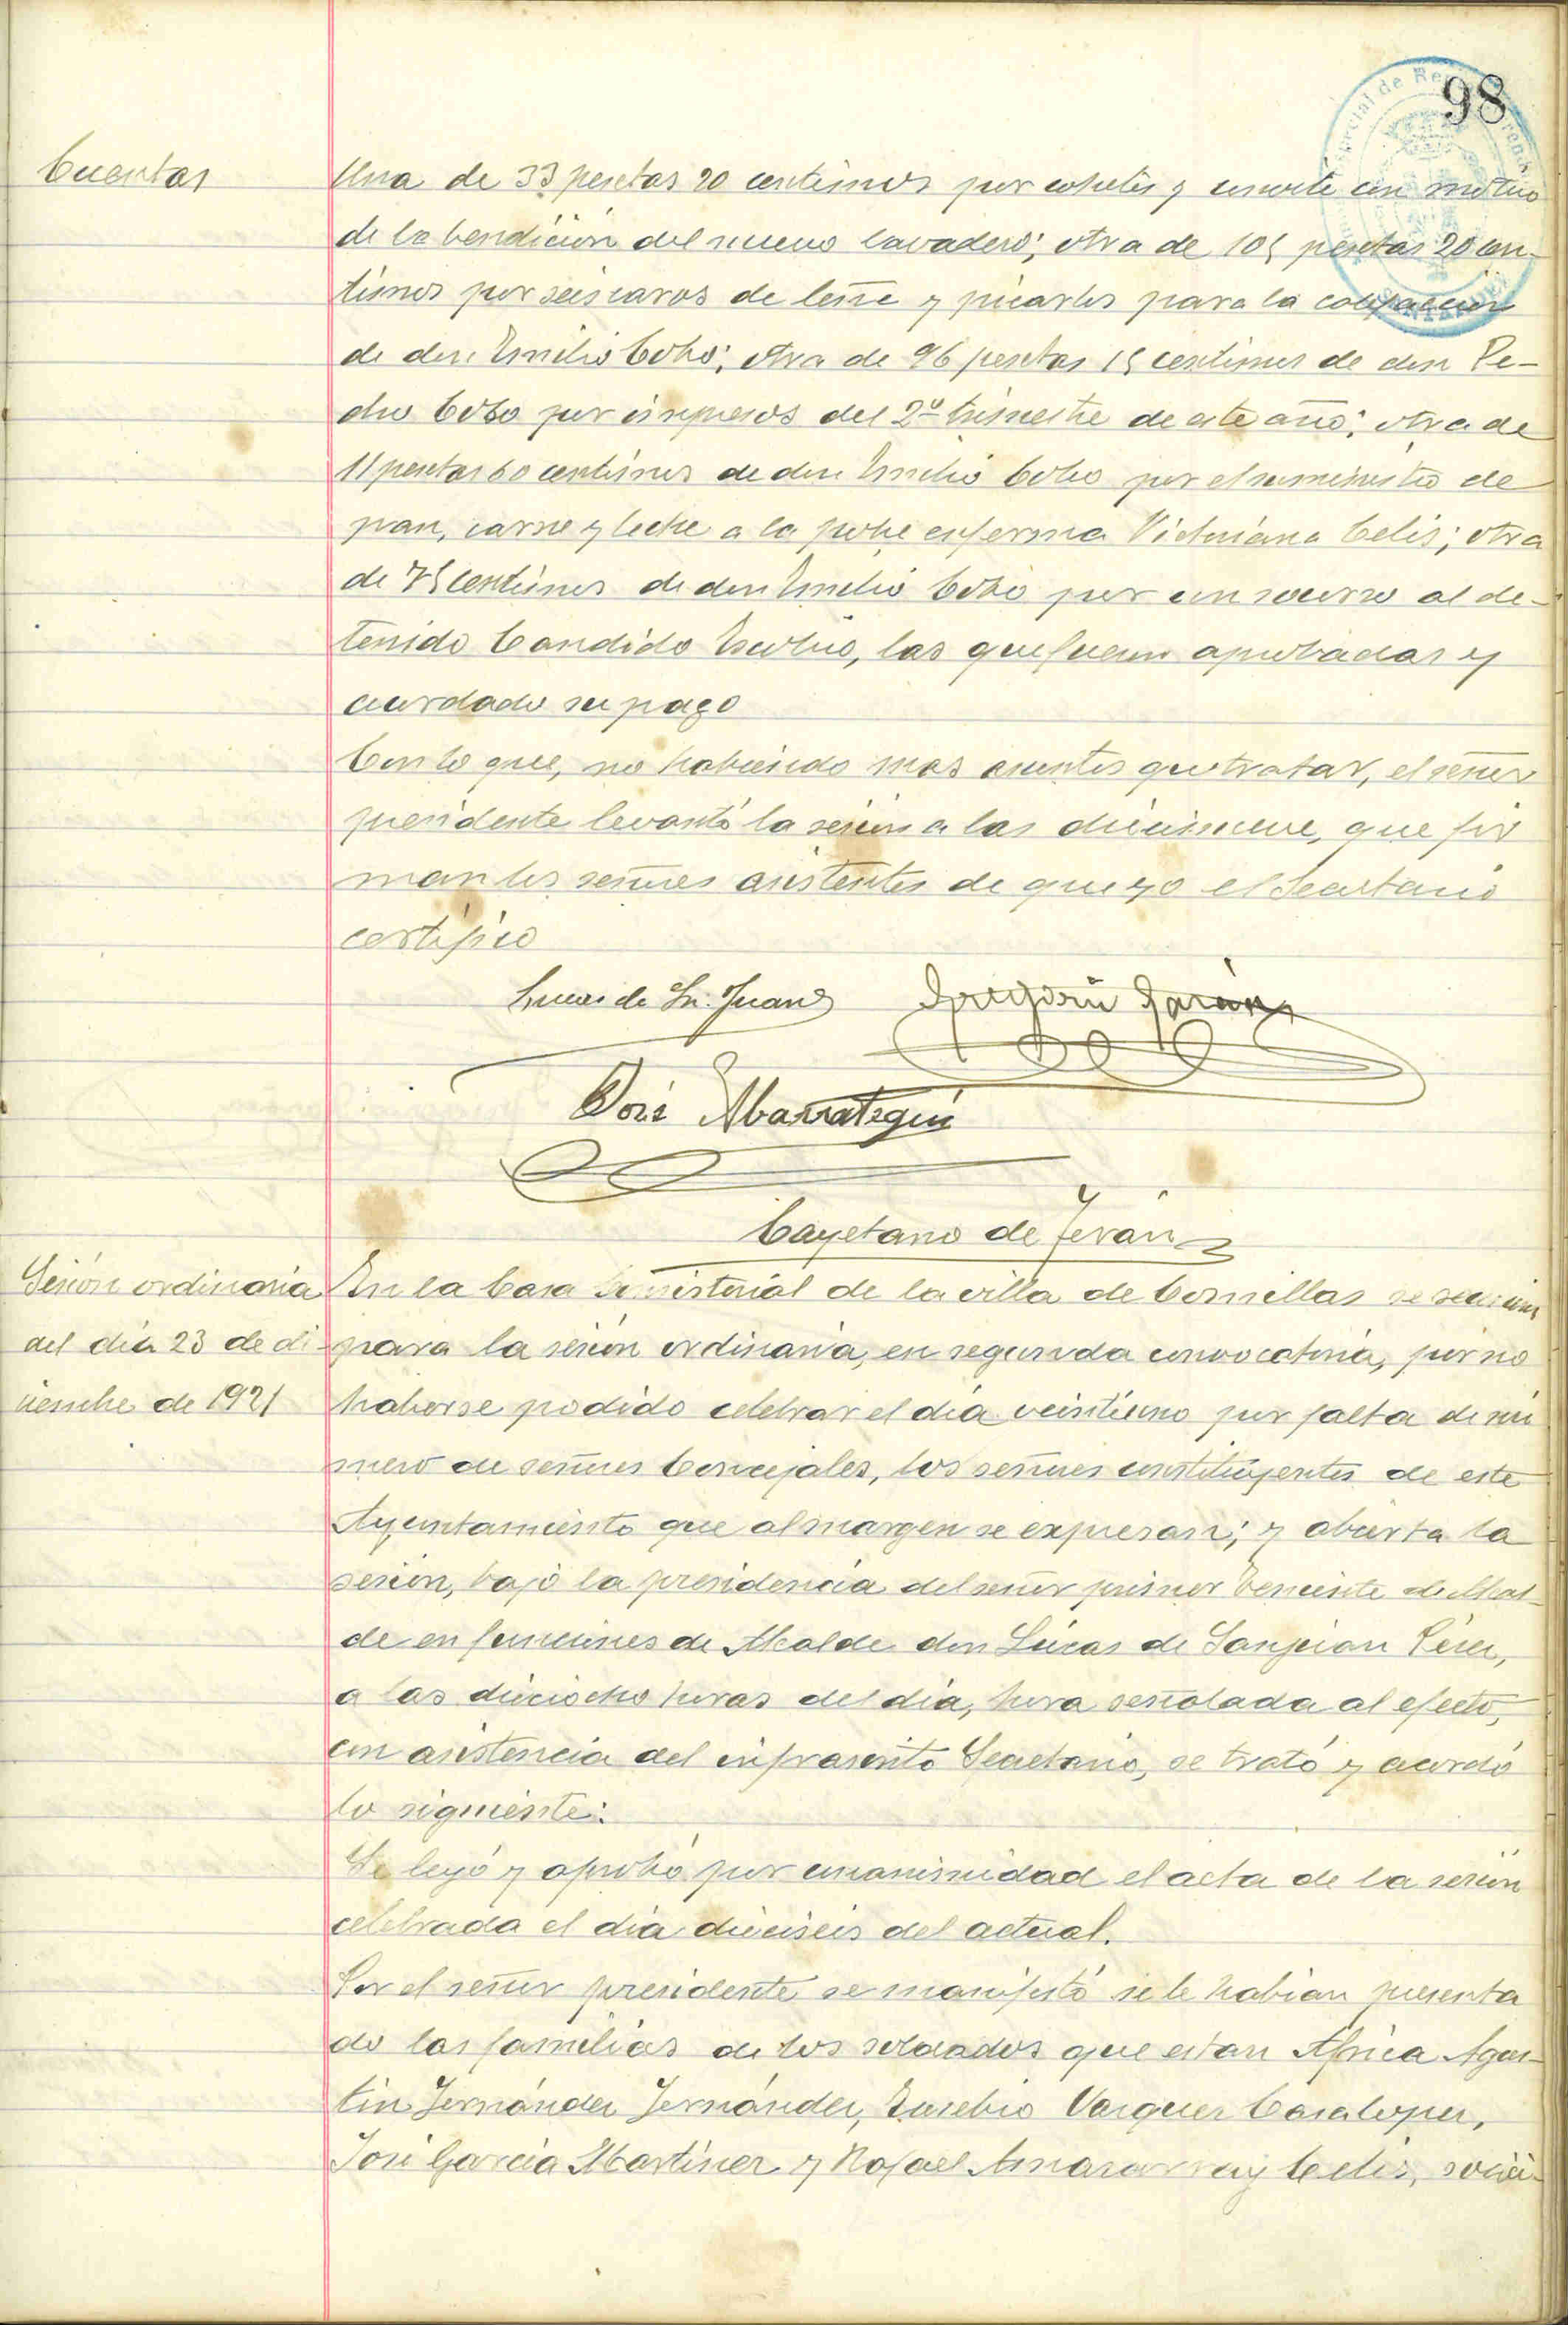 98
Cuentas
Una de 33 pesetas 20 centimos por cohetes y con motivo
de la bendición del nuevo lavadero; otra de 105 pesetas 20 cen-
timos por seis carros de leña y picarlos para la calefacción
de don Emilio Cobo; otra de 96 pesetas 15 centimos de don Pe-
dro Cobo por impresos del 2º trimestre de este año; otra de
11 pesetas 60 centimos de don Emilio Cobo por el suministro de
pan, carne y leche a la pobre enferma Victoriana Celis; otra
de 75 centimos de don Emilio Cobo por un socorro al de-
tenido Candido, las que fueron aprobadas y
acordado su pago
Con lo que, no habiendo mas asuntos que tratar, el señor
presidente levantó la sesión a las diecinueve, que fir
man los señores asistentes de que yo el Secretario
certifico
Lucas de Sn. Juan Gregorio
José Abarrategui
Cayetano de Terán
Sesión ordinaria
del día 23 de di-
ciembre de 1921
En la Casa Consistorial de la villa de Comillas se reunieron
para la sesión ordinaria, en segunda convocatoria, por no
haberse podido celebrar el día veintiuno por falta de nú
mero de señores Concejales, los señores constituyentes de este
Ayuntamiento que al margen se expresan; y abierta la
sesión, bajo la presidencia del señor primer Teniente de Alcal-
de en funciones de Alcalde don Lúcas de Sanjuan Pérez,
a las dieciocho horas del día, hora señalada al efecto,
con asistencia del infrascrito Secretario, se trató y acordó
lo siguiente:
Se leyó y aprobó por unanimidad el acta de la sesión
celebrada el día dieciseis del actual.
Por el señor presidente se manifestó se le habían presenta
do las familias de los soldados que estan Africa Agus-
tin Fernández Fernández, Eusebio Vazquez Casalopez,
José García Martinez y Rafael Celis, solici-